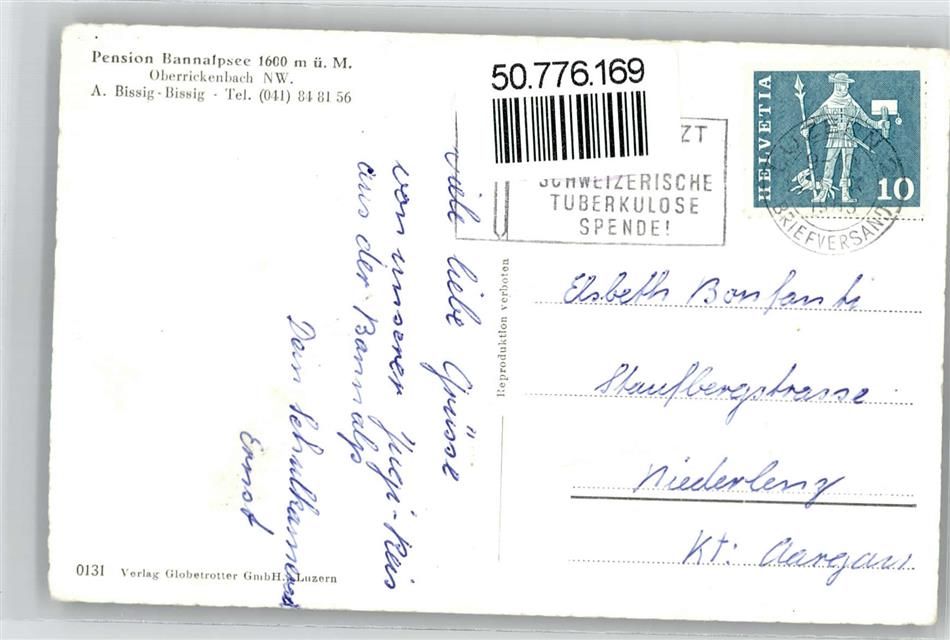 Pension Bannalpsee 1600 m ü. M.
Oberrickenbach NW.
A. Bissig-Bissig - Tel. (041) 84 81 56
50.776.169
ZT
SCHWEIZERISCHE
TUBERKULOSE
SPENDE!
HELVETIA
10
LUZERN 2
BRIEFVERSAND
viele liebe Grüsse
von unserer Jugi-Reis
aus der Bannalp
Dein Schulkamerad
Ernst
Reproduktion verboten
Elsbeth Bonfanti
Staufbergstrasse
Niederlenz
Kt: Aargau
0131 Verlag Globetrotter GmbH., Luzern